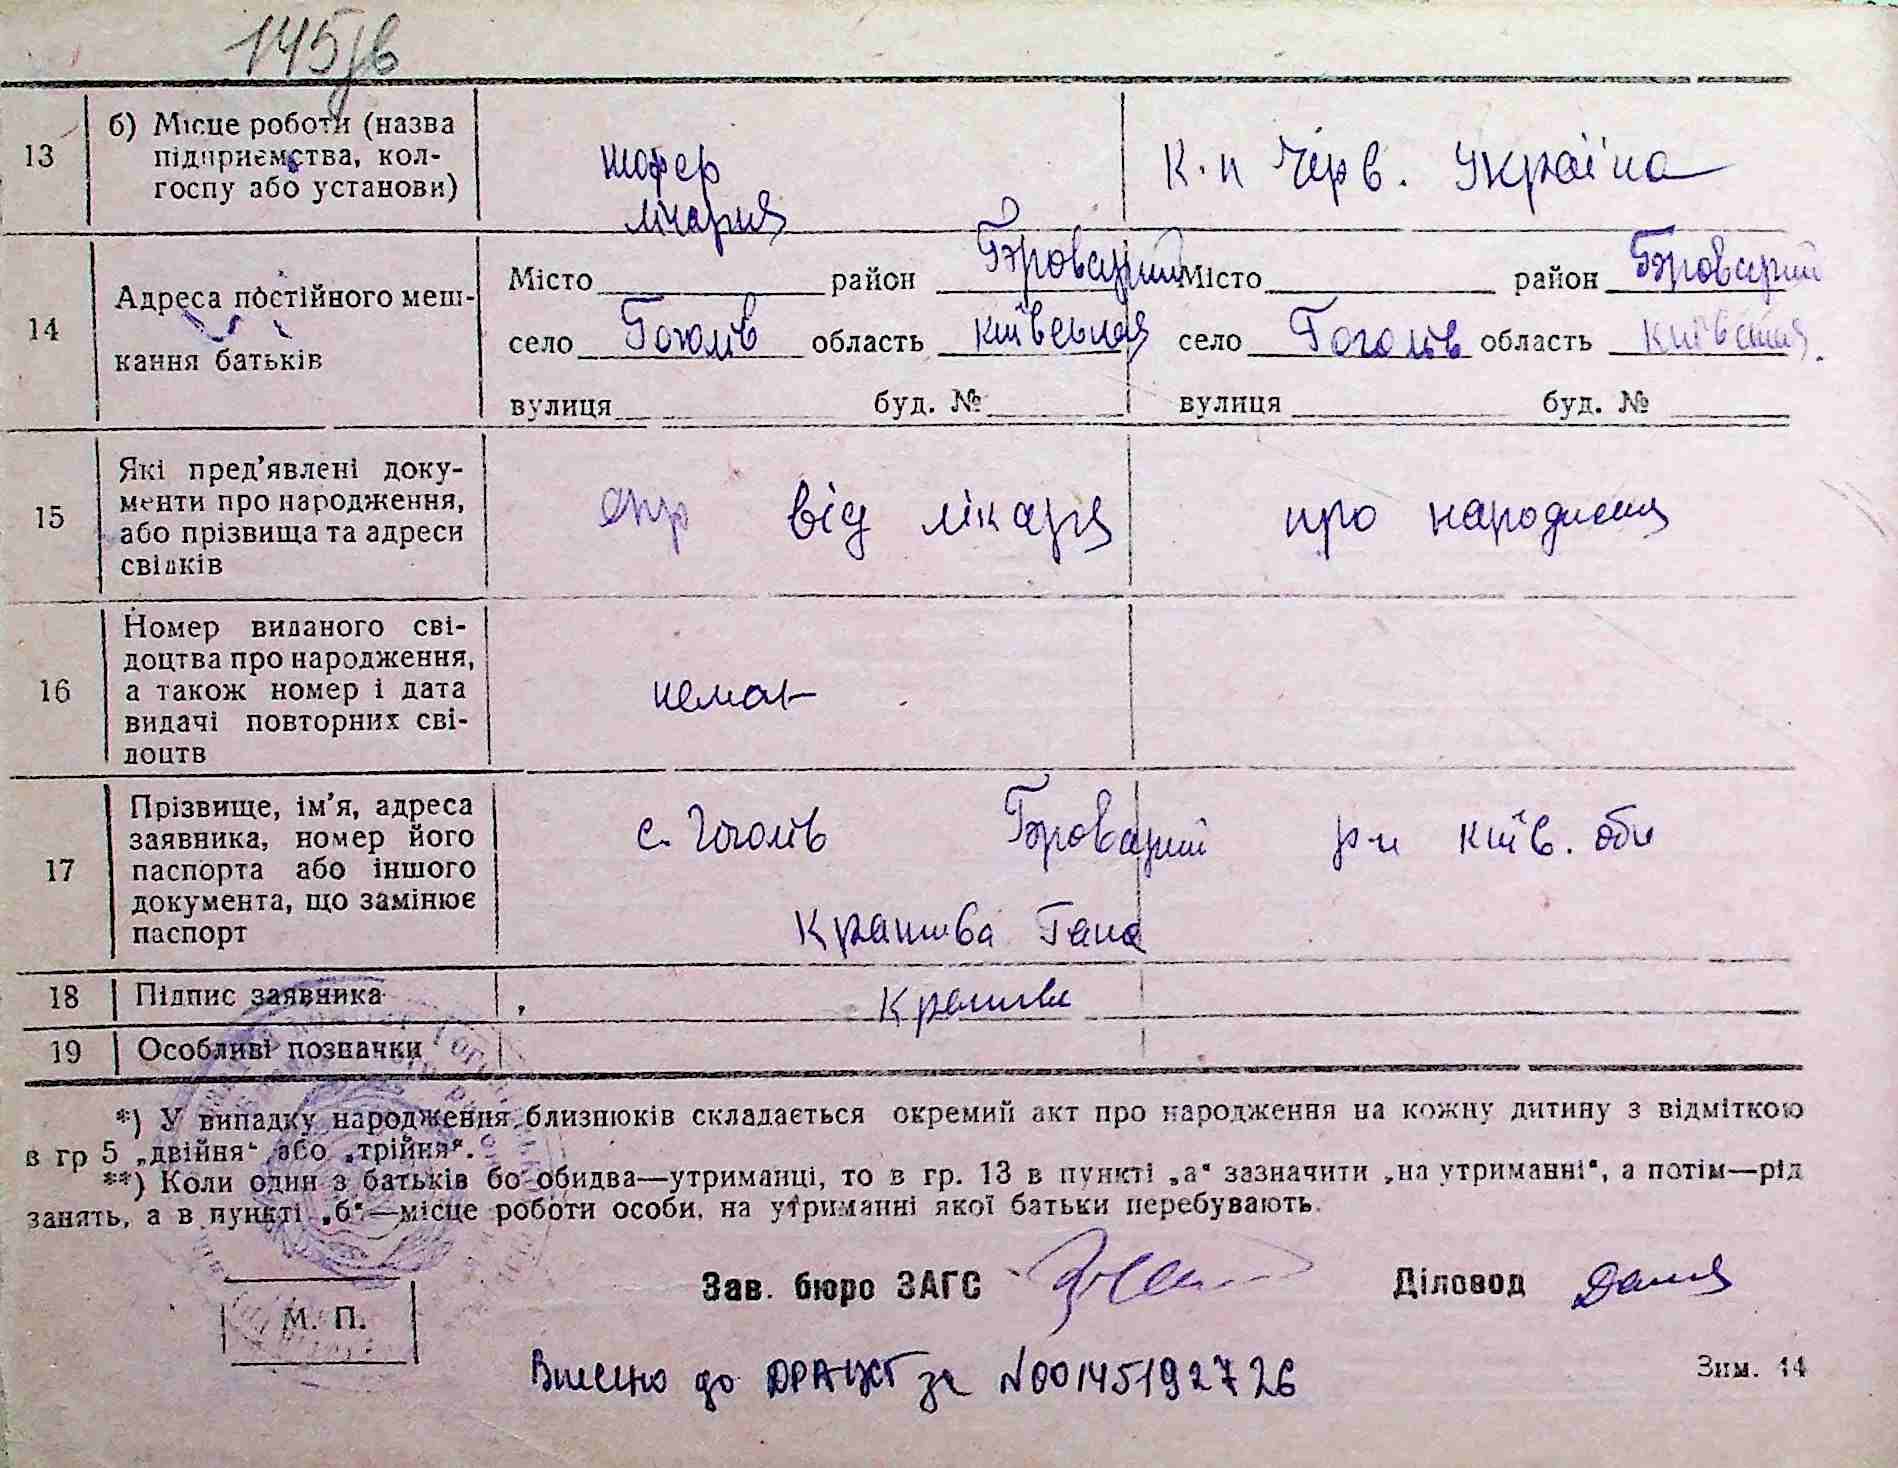 145/в
13 б) Місце роботи (назва підприємства, колгоспу або установи) шофер лікарня К.п Черв. Україна
14 Адреса постійного мешкання батьків
Місто район Броварський Місто район Броварський
село Гоголів область Київська село Гоголів область Київська
вулиця буд. № вулиця буд. №
15 Які пред'явлені документи про народження, або прізвища та адреси свідків спр від лікаря про народження
16 Номер виданого свідоцтва про народження, а також номер і дата видачі повторних свідоцтв немає
17 Прізвище, ім'я, адреса заявника, номер його паспорта або іншого документа, що замінює паспорт с. Гоголів Броварський р-н Київ. обл
Кропива Гана
18 Підпис заявника Кропива
19 Особливі позначки
*) У випадку народження близнюків складається окремий акт про народження на кожну дитину з відміткою
в гр 5 „двійня“ або „трійня“.
**) Коли один з батьків бо обидва—утриманці, то в гр. 13 в пункті „а“ зазначити „на утриманні“, а потім—рід
занять, а в пункті „б“—місце роботи особи, на утриманні якої батьки перебувають.
Зав. бюро ЗАГС Діловод
М. П.
Внесено до ДРАЦСГ за №00145192726
Зим. 14